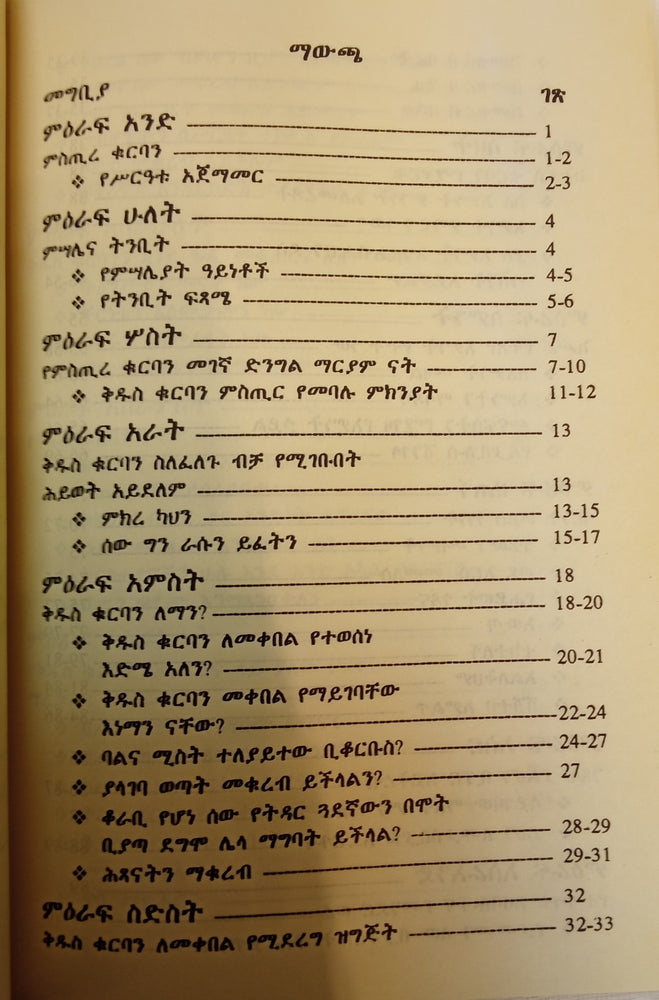 ማውጫ
መግቢያ ገጽ
ምዕራፍ አንድ ---------- 1
ምስጢረ ቁርባን ---------- 1-2
❖ የሥርዓቱ አጀማመር ---------- 2-3
ምዕራፍ ሁለት ---------- 4
ምሣሌና ትንቢት ---------- 4
❖ የምሣሌያት ዓይነቶች ---------- 4-5
❖ የትንቢት ፍጻሜ ---------- 5-6
ምዕራፍ ሦስት ---------- 7
የምስጢረ ቁርባን መገኛ ድንግል ማርያም ናት ---------- 7-10
❖ ቅዱስ ቁርባን ምስጢር የመባሉ ምክንያት 11-12
ምዕራፍ አራት ---------- 13
ቅዱስ ቁርባን ስለፈለጉ ብቻ የሚገቡበት
ሕይወት አይደለም ---------- 13
❖ ምክረ ካህን ---------- 13-15
❖ ሰው ግን ራሱን ይፈትን ---------- 15-17
ምዕራፍ አምስት ---------- 18
ቅዱስ ቁርባን ለማን? ---------- 18-20
❖ ቅዱስ ቁርባን ለመቀበል የተወሰነ
እድሜ አለን? ---------- 20-21
❖ ቅዱስ ቁርባን መቀበል የማይገባቸው
እነማን ናቸው? ---------- 22-24
❖ ባልና ሚስት ተለያይተው ቢቆርቡስ? ---------- 24-27
❖ ያላገባ ወጣት መቁረብ ይችላልን? ---------- 27
❖ ቆራቢ የሆነ ሰው የትዳር ጓደኛውን በሞት
ቢያጣ ደግሞ ሌላ ማግባት ይችላል? ---------- 28-29
❖ ሕጻናትን ማቁረብ ---------- 29-31
ምዕራፍ ስድስት ---------- 32
ቅዱስ ቁርባን ለመቀበል የሚደረግ ዝግጅት ---------- 32-33